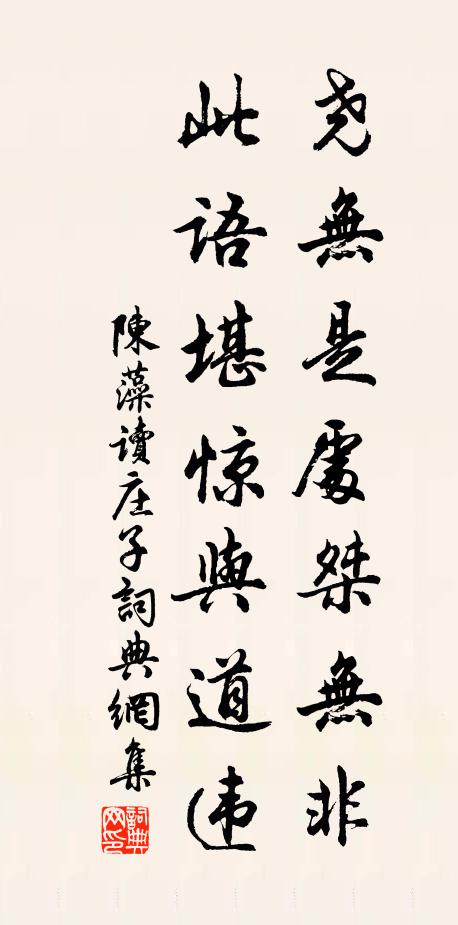 尧無是處桀無非
此語堪惊與道违
陳藻讀庄子詞典網集
詞典网印